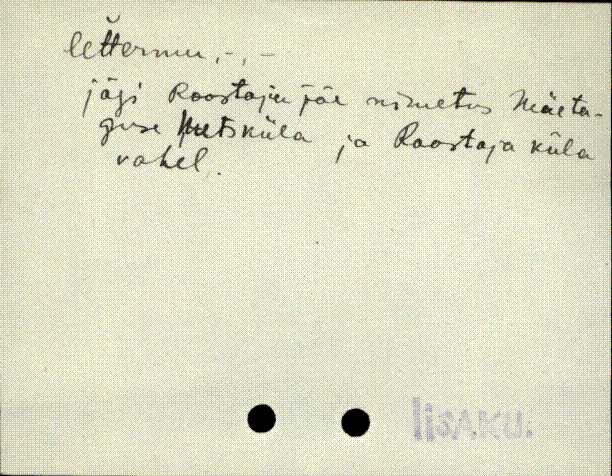 lettermu, -, -
jõgi Roostaja jõe nimetus Mäeta-
guse Metsküla ja Roostaja küla
vahel.
IISAKU.